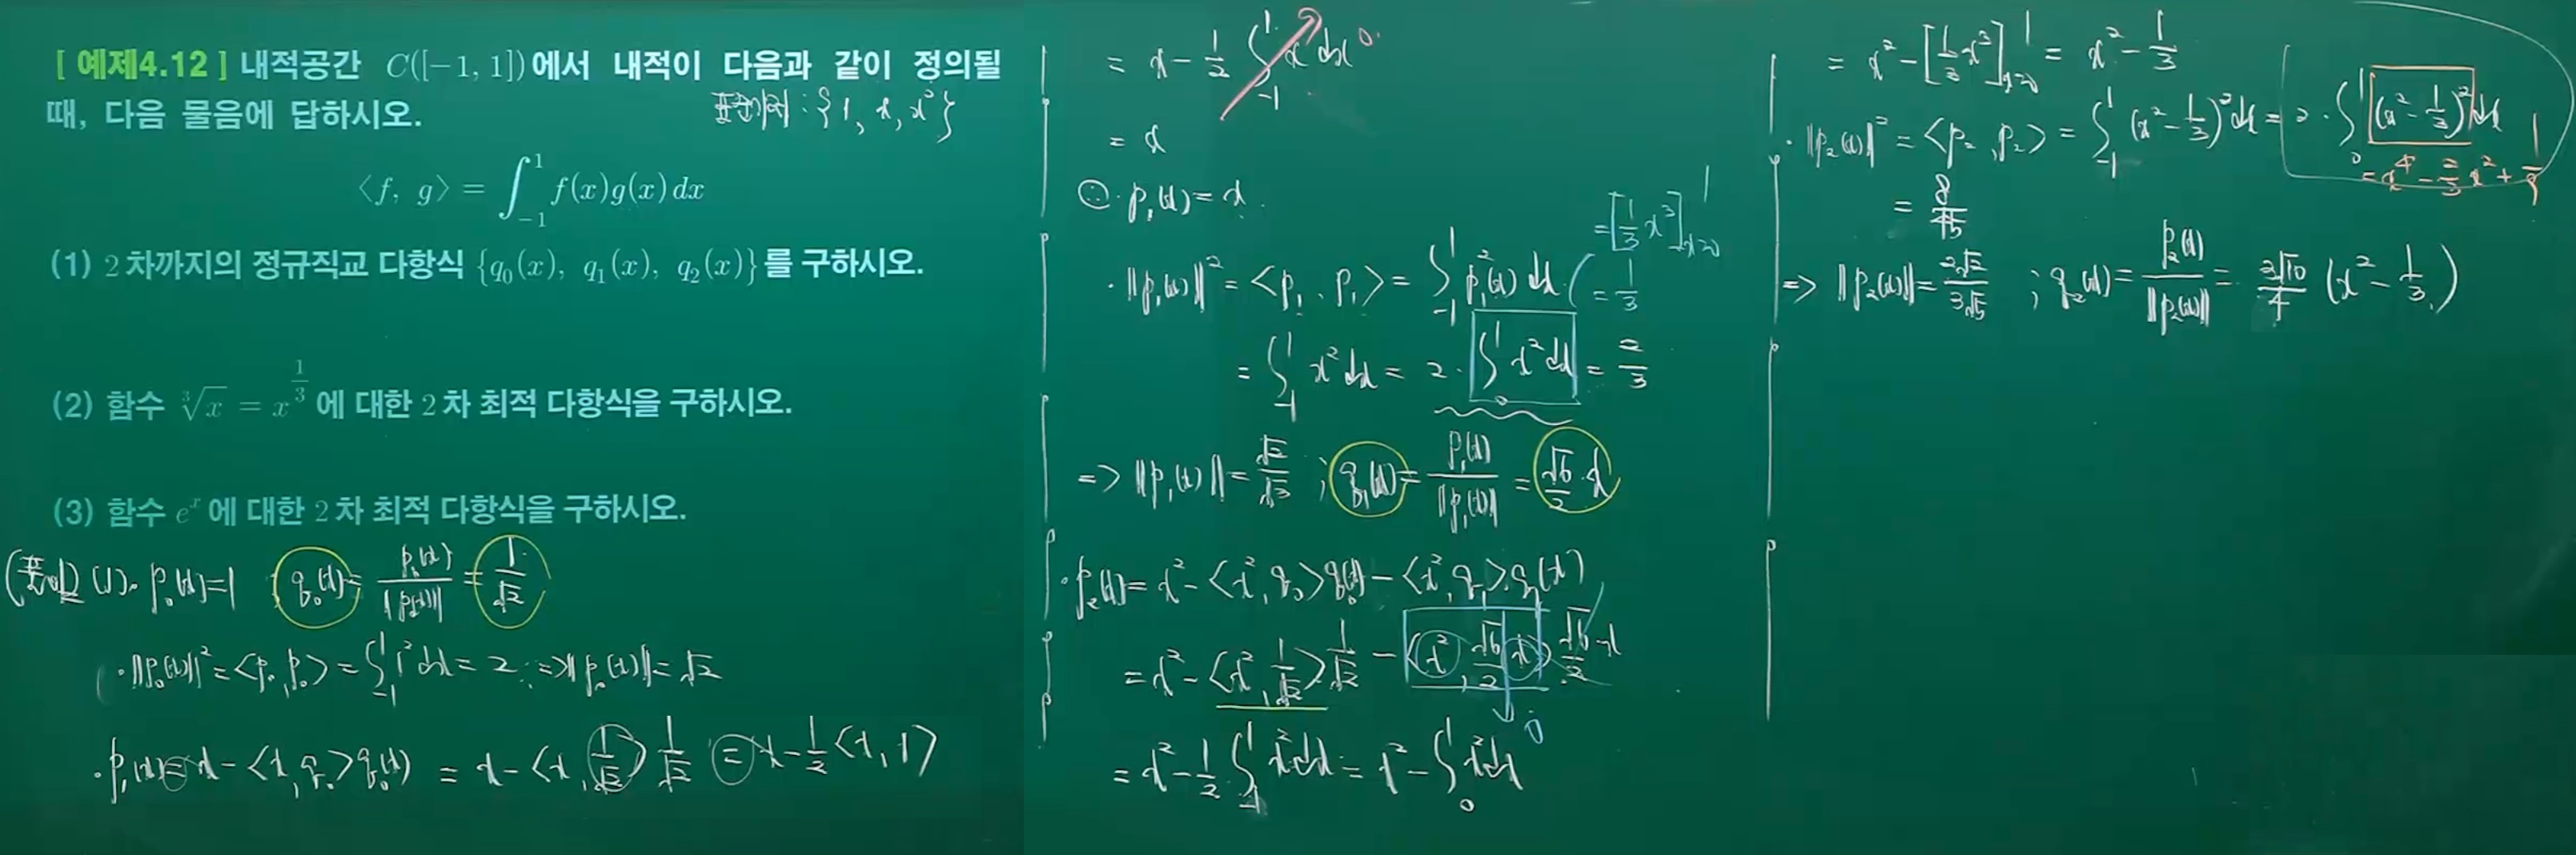 [ 예제4.12 ] 내적공간 C([-1, 1])에서 내적이 다음과 같이 정의될
때, 다음 물음에 답하시오.
표준기저 : {1, x, x²}
⟨f, g⟩ = ∫₋₁¹ f(x)g(x)dx
(1) 2차까지의 정규직교 다항식 {q₀(x), q₁(x), q₂(x)}를 구하시오.
(2) 함수 ∛x = x^(1/3) 에 대한 2차 최적 다항식을 구하시오.
(3) 함수 eˣ 에 대한 2차 최적 다항식을 구하시오.
(풀이) (1). p₀(x)=1 q₀(x)= p₀(x)/‖p₀(x)‖ = 1/√2
· ‖p₀(x)‖² = <p₀, p₀> = ∫₋₁¹ 1² dx = 2 ; => ‖p₀(x)‖ = √2
· p₁(x) = x - <x, q₀>q₀(x) = x - <x, 1/√2> 1/√2 = x - 1/2 <x, 1>
= x - 1/2 ∫₋₁¹ x dx 0
= x
∴ p₁(x) = x
· ‖p₁(x)‖² = <p₁, p₁> = ∫₋₁¹ p₁²(x) dx
= [1/3 x³]¹ₓ₌₀
= 1/3
= ∫₋₁¹ x² dx = 2 · ∫₀¹ x² dx = 2/3
=> ‖p₁(x)‖ = √2/√3 ; q₁(x) = p₁(x)/‖p₁(x)‖ = √6/2 · x
· p₂(x) = x² - <x², q₀>q₀(x) - <x², q₁>q₁(x)
= x² - <x², 1/√2> 1/√2 - <x², √6/2 x> √6/2 x
0
= x² - 1/2 ∫₋₁¹ x² dx = x² - ∫₀¹ x² dx
= x² - [1/3 x³]¹ₓ₌₀ = x² - 1/3
· ‖p₂(x)‖² = <p₂, p₂> = ∫₋₁¹ (x² - 1/3)² dx = 2 · ∫₀¹ (x² - 1/3)² dx
= x⁴ - 2/3 x² + 1/9
= 8/45
=> ‖p₂(x)‖ = 2√2/3√5 ; q₂(x) = p₂(x)/‖p₂(x)‖ = 3√10/4 (x² - 1/3)